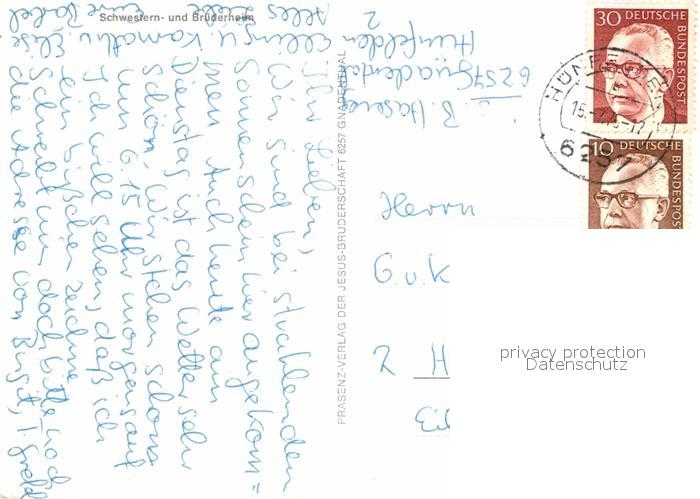 Schwestern- und Brüderheim
Ihr Lieben,
Wir sind bei strahlendem
Sonnenschein hier angekom=
men. Auch heute am
Dienstag ist das Wetter sehr
schön. Wir stehen schon
um 6.15 Uhr morgens auf
Ich will sehen, daß ich
ein bißchen zeichne.
Schreibt mir doch bitte noch
die Adresse von
Alles Liebe
eure
PRÄSENZ-VERLAG DER JESUS-BRUDERSCHAFT 6257 GNADENTHAL
6257 Gnadental
Hünfelden
2
Herrn
G. u. K
2 H
30 DEUTSCHE
BUNDESPOST
10 DEUTSCHE
BUNDESPOST
6257
privacy protection
Datenschutz